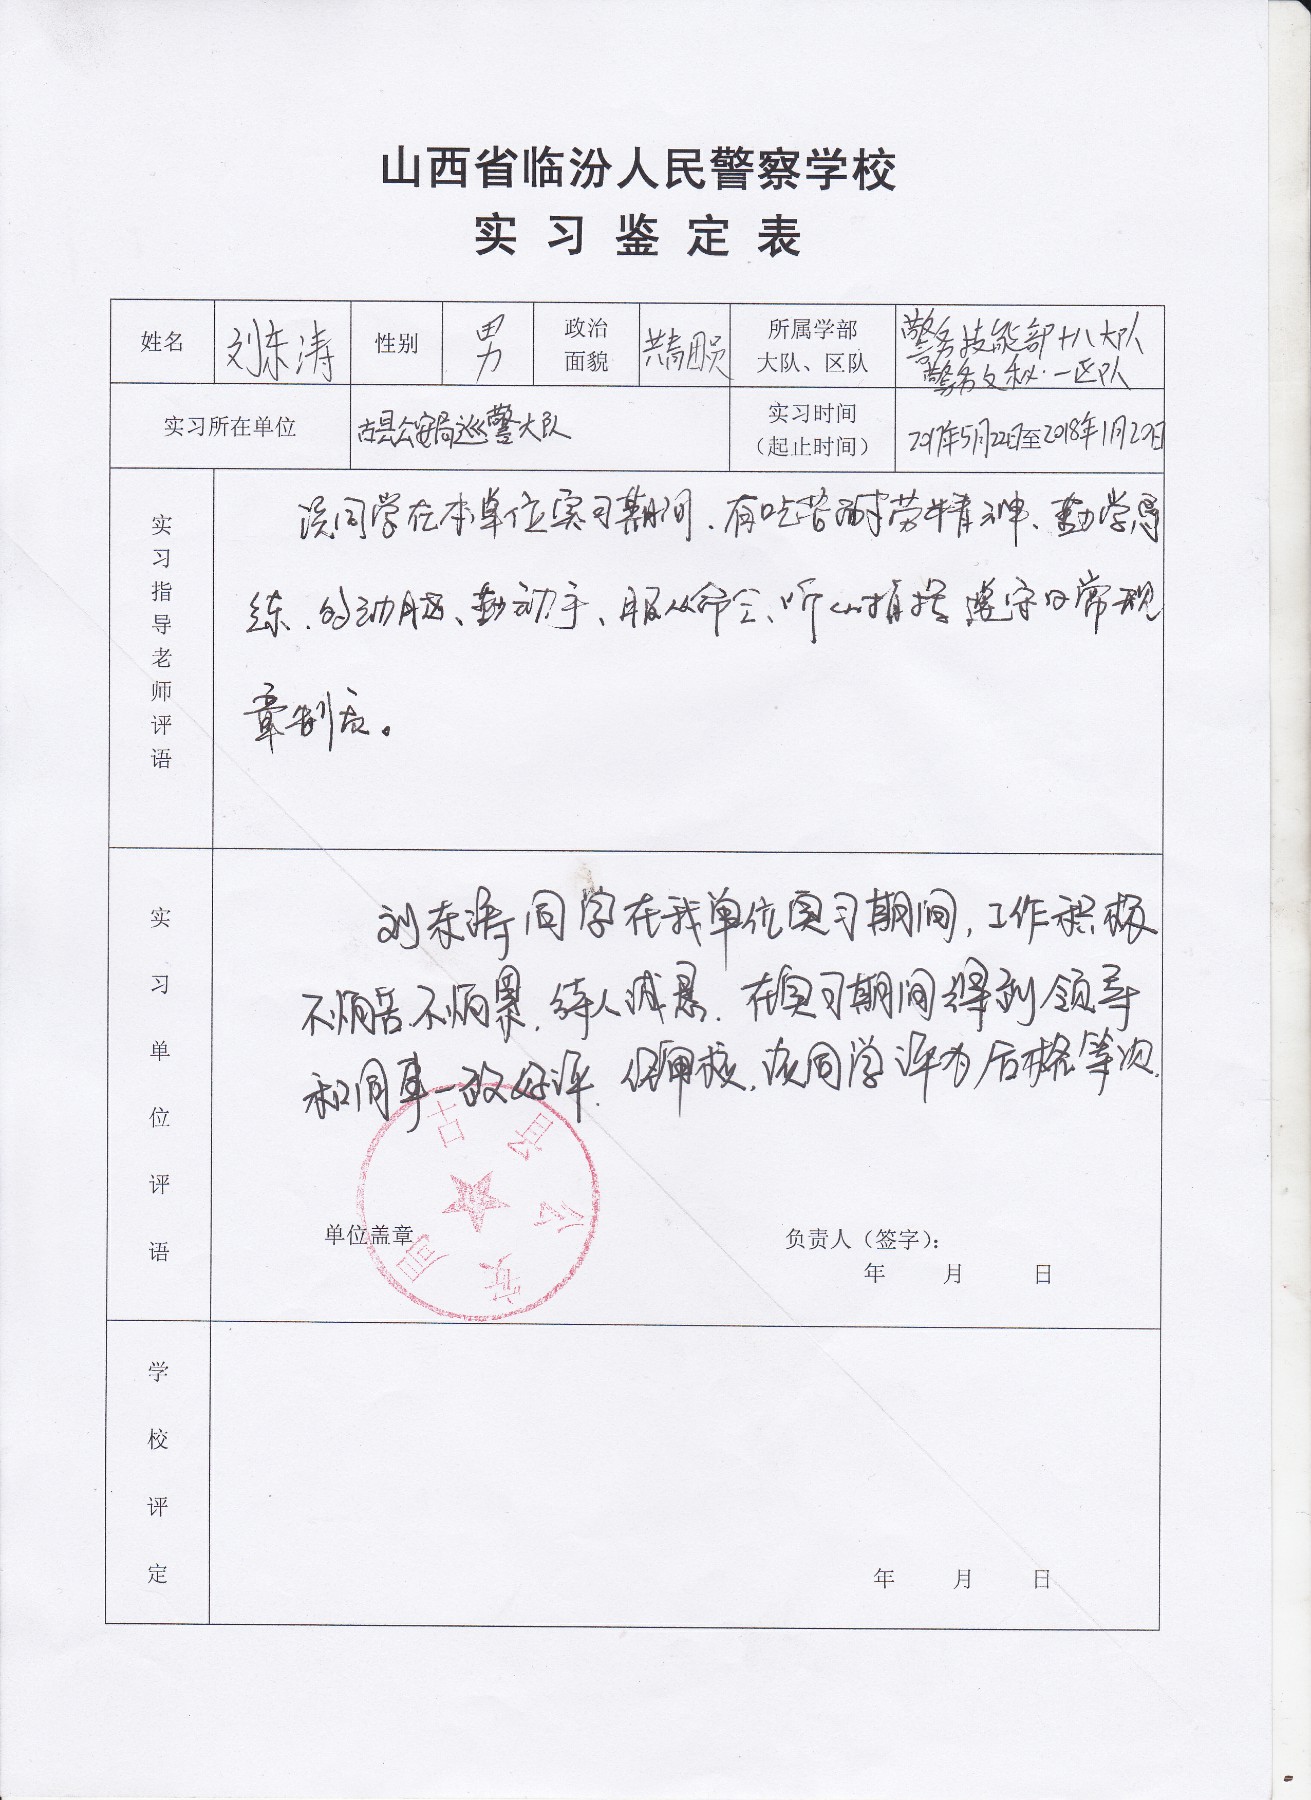 山西省临汾人民警察学校
实习鉴定表
姓名 刘东涛 性别 男 政治面貌 共青团员 所属学部大队、区队 警务技能部十八大队
警务文秘一区队
实习所在单位 古县公安局巡警大队 实习时间（起止时间） 2017年5月22日至2018年1月20日
实习指导老师评语
该同学在本单位实习期间、有吃苦耐劳精神、勤学
练、动脑、勤动手、服从命令、听从指挥 遵守日常规
章制度。
实习单位评语
刘东涛同学在我单位实习期间，工作积极
不怕苦、不怕累，待人诚恳，在实习期间得到领导
和同事一致好评，审核，该同学评为合格等次.
古县公安局
单位盖章 负责人（签字）：
年 月 日
学校评定
年 月 日